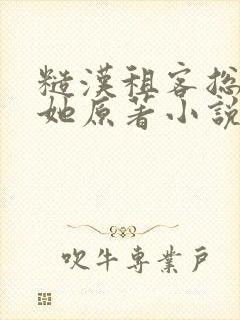 糙漢租客総
她原著小說
吹牛專業戶